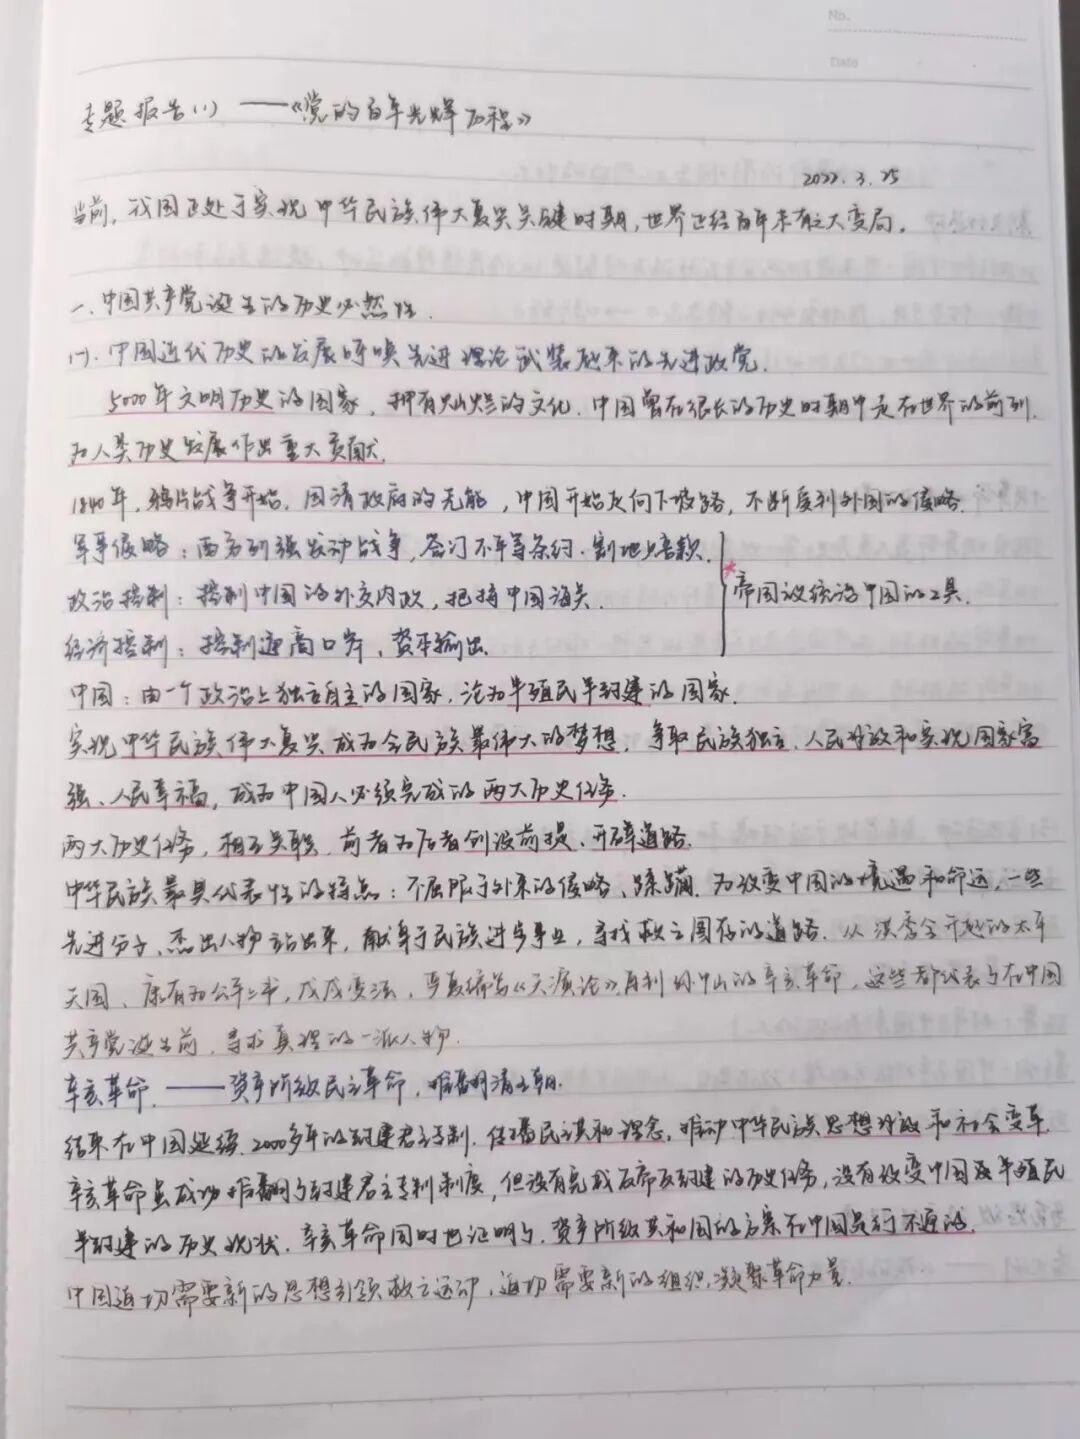 No.
Date
专题报告(1) ——《党的百年光辉历程》
2022.3.25
当前，我国正处于实现中华民族伟大复兴关键时期，世界正经百年未有之大变局。
一、中国共产党诞生的历史必然性.
(一).中国近代历史的发展呼唤先进理论武装起来的先进政党.
5000年文明历史的国家，拥有灿烂的文化.中国曾在很长的历史时期中走在世界的前列.
为人类历史发展作出重大贡献.
1840年，鸦片战争开始.因清政府的无能，中国开始走向下坡路，不断受到外国的侵略.
军事侵略：西方列强发动战争，签订不平等条约.割地赔款.
政治控制：控制中国的外交内政，把持中国海关.
帝国没统治中国的工具.
经济控制：控制通商口岸，资本输出.
中国：由一个政治上独立自主的国家，沦为半殖民半封建的国家.
实现中华民族伟大复兴成为全民族最伟大的梦想.争取民族独立、人民解放和实现国家富
强、人民幸福，成为中国人必须完成的两大历史任务.
两大历史任务，相互关联.前者为后者创设前提、开辟道路.
中华民族最具代表性的特点：不屈服于外来的侵略、蹂躏.为改变中国的境遇和命运，一些
先进分子、杰出人物站出来，献身于民族进步事业，寻找救亡图存的道路.从洪秀全开起的太平
天国、康有为公车上书，戊戌变法，严复编写《天演论》.再到孙中山的辛亥革命，这些都代表了在中国
共产党诞生前，寻求真理的一派人物.
辛亥革命.——资产阶级民主革命，推翻清王朝.
结束在中国延续2000多年的封建君主专制.传播民主共和理念，推动中华民族思想解放和社会变革.
辛亥革命虽成功推翻了封建君主专制制度，但没有完成反帝反封建的历史任务，没有改变中国及半殖民
半封建的历史现状.辛亥革命同时也证明了.资产阶级共和国的方案在中国是行不通的.
中国迫切需要新的思想引领救亡运动，迫切需要新的组织，凝聚革命力量.